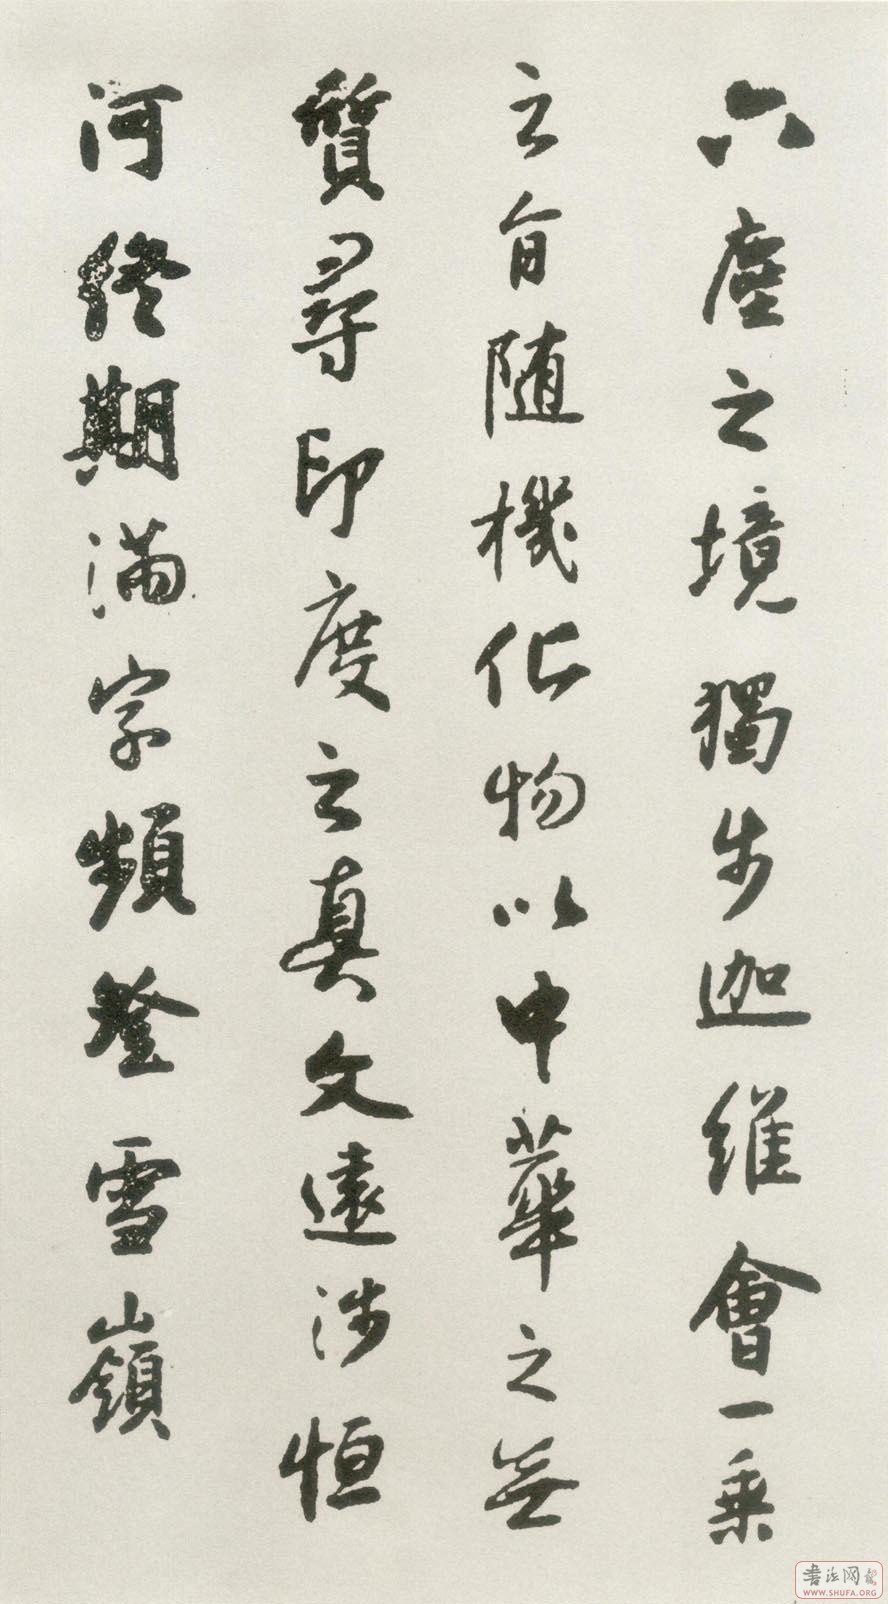 六塵之境獨步迦維會一乘
之旨随機化物以中華之無
質尋印度之真文遠涉恒
河終期滿字頻登雪嶺
書法网
WWW.SHUFA.ORG